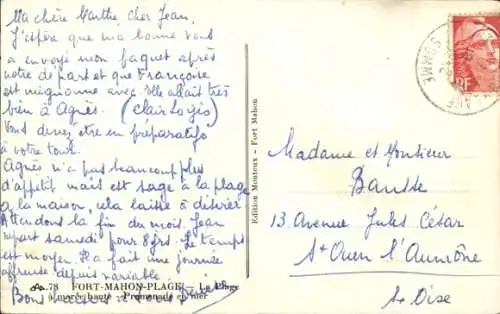 Ma chère Marthe, cher Jean,
J'espère que ma bonne vous
a envoyé mon paquet après
notre départ et que Françoise
est mignonne avec elle allait très
bien à Agnès. (Clair Logis)
Vous devez être en préparatifs
à votre tour.
Agnès n'a pas beaucoup plus
d'appétit mais est sage à la plage
à la maison, cela laisse à désirer
Attendons la fin du mois. Jean
repart samedi pour 8 jrs. Le temps
est moyen. Il a fait une journée
affreuse depuis variable.
78 FORT-MAHON-PLAGE — La Plage
à marée haute - Promenade en mer
Bons baisers
Edition Monteux - Fort Mahon
SOMME
RF
Madame et Monsieur
13 Avenue Jules César
St Ouen l'Aumône
S. Oise